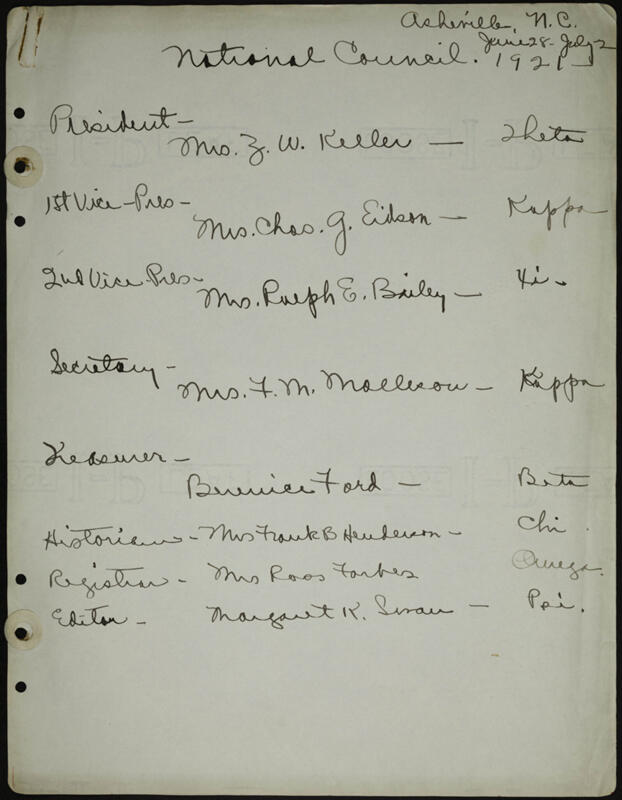 Asheville, N.C.
June 28-July 2
National Council. 1921-
President-
Mrs. Z. W. Keller — Theta
1st Vice-Pres-
Mrs. Chas. G. Eidson — Kappa
2nd Vice-Pres-
Mrs. Ralph E. Bailey — Xi.
Secretary-
Mrs. F. M. — Kappa
Treasurer-
Bernice Ford — Beta
Historian - Mrs Frank B Henderson - Chi.
Registrar - Mrs Roos Forbes Omega.
Editor - Margaret K. — Psi.